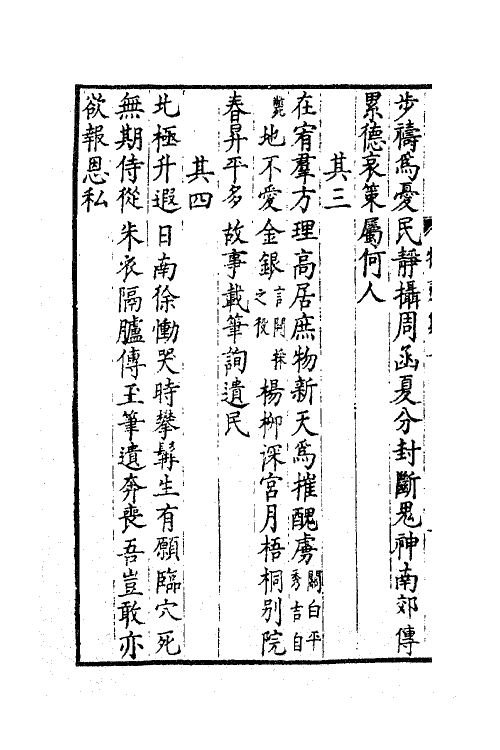 步禱爲憂民靜攝周函夏分封斷鬼神南郊傳
累德哀策屬何人
其三
在宥羣方理高居庶物新天爲摧醜虜關白平秀吉自
斃地不愛金銀言開採之役楊柳深宮月梧桐别院
春昇平多故事載筆詢遺民
其四
北極升遐日南徐慟哭時攀髯生有願臨穴死
無期侍從朱衣隔臚傳玉筆遺奔喪吾豈敢亦
欲報恩私